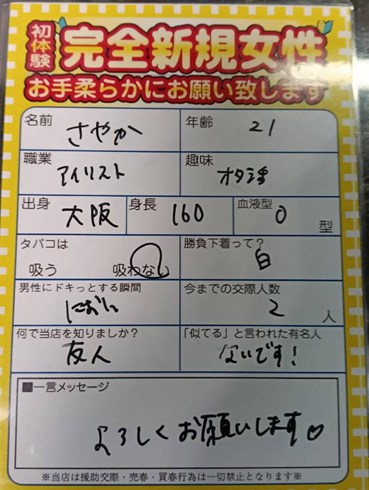 初体験 完全新規女性
お手柔らかにお願い致します
名前 さやか 年齢 21
職業 アイリスト 趣味 オタ活
出身 大阪 身長 160 血液型 O 型
タバコは 吸う 吸わない 勝負下着って? 白
男性にドキっとする瞬間 におい 今までの交際人数 2 人
何で当店を知りましたか? 友人 「似てる」と言われた有名人 ないです!
■一言メッセージ
よろしくお願いします♡
※当店は援助交際・売春・買春行為は一切禁止となります※